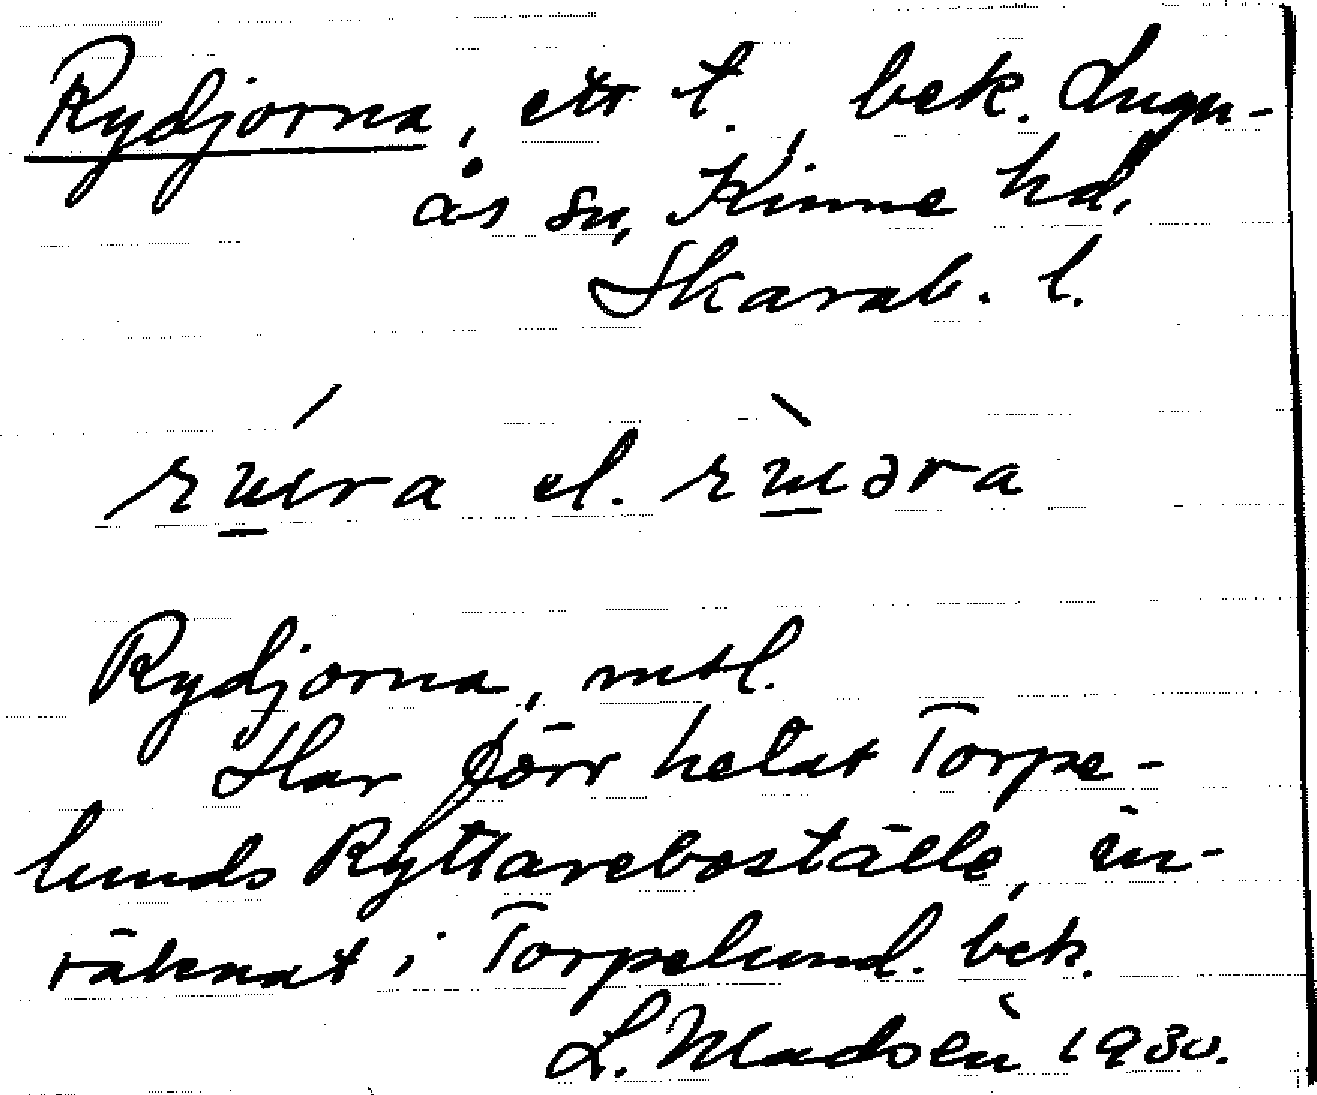 Rydjorna, ett t., bek. Lugn-
ås sn, Kinne hd,
Skarab. l.
el.
Rydjorna, mtl.
Har förr hetat Torpe-
lunds Ryttareboställe, in-
räknat i Torpelund. bek.
L. Madsèn 1930.